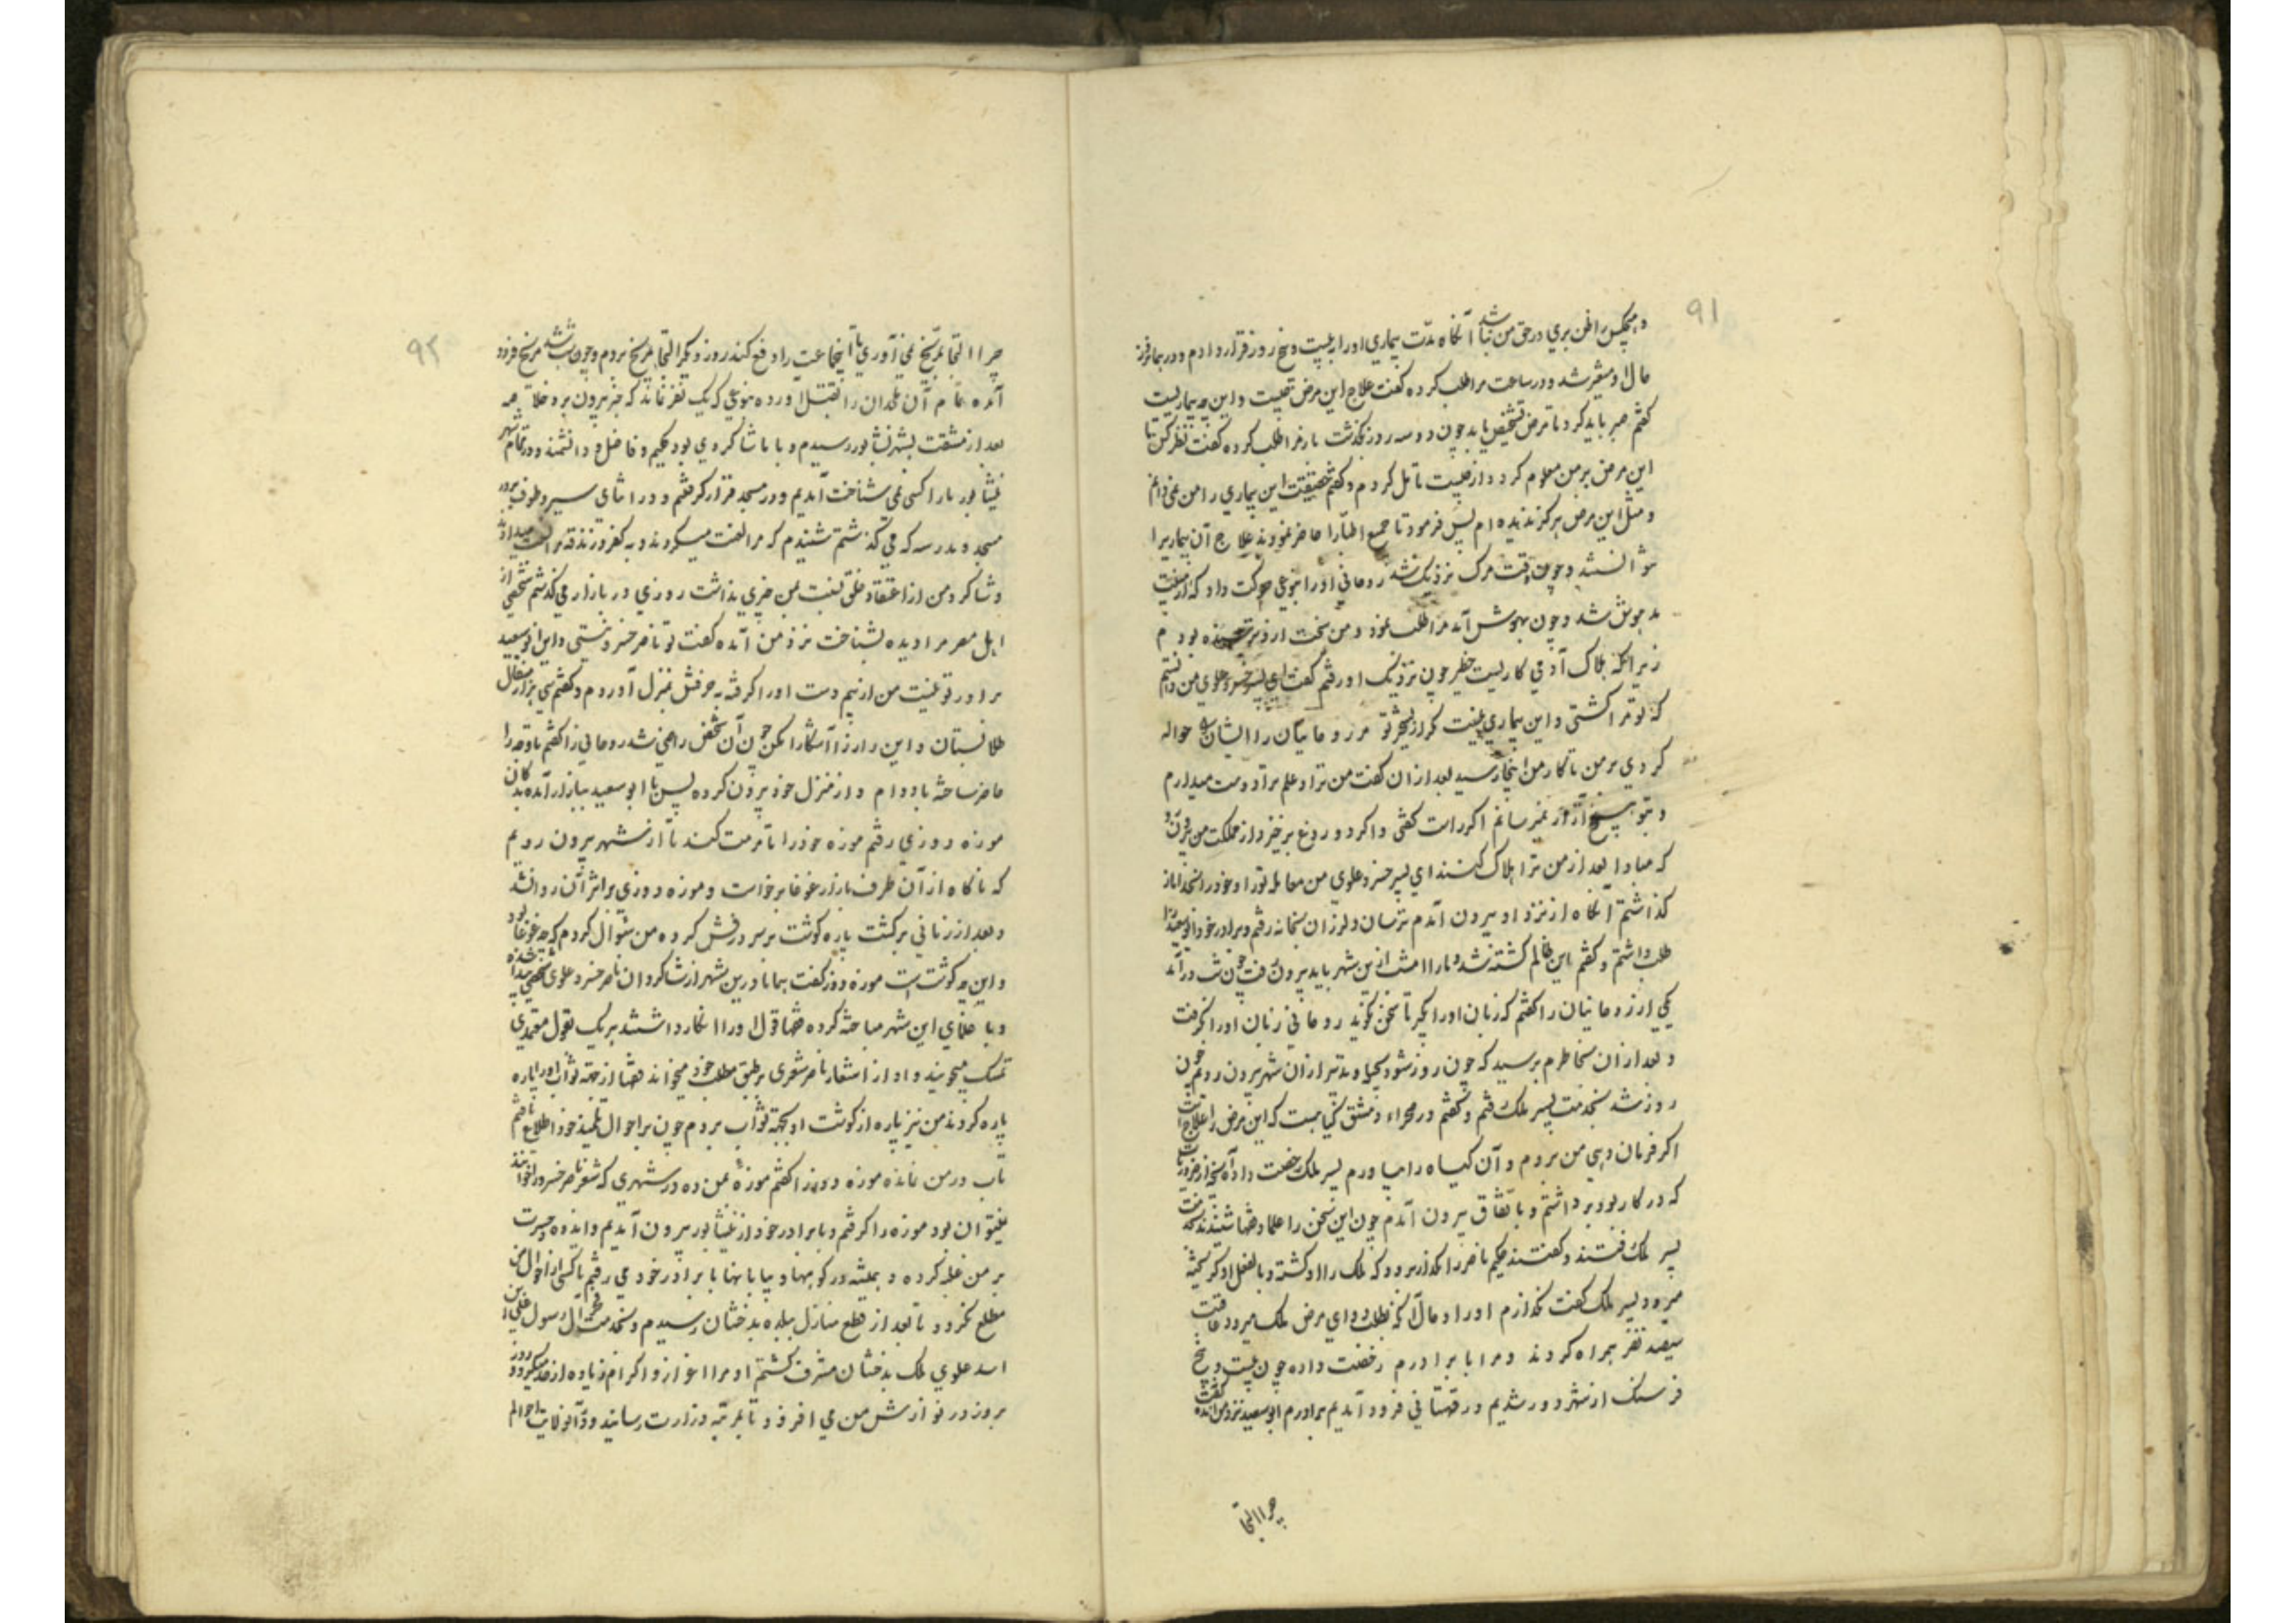 ۹۱
و هیچکس را ظن بدی در حق من نباشد آنگاه مدت بیماری او را بیست و پنج روز قرار دادم و در بیمار
حال او متغیر شد و در ساعت مرا طلب کرده گفت علاج این مرض چیست و این چه بیماریست
گفتم صبر باید کرد تا مرض تشخیص یابد چون دو سه روز بگذشت باز مرا طلب کرده گفت نظر کن تا
این مرض بر من معلوم گردد از چیست تامل کردم و گفتم حقیقت این بیماری را من نمی دانم
و مثل این مرض هرگز ندیده ام پس فرمود تا جمع اطبا را حاضر نمودند علاج آن بیماری را
نتوانستند و چون وقت مرگ نزدیک شد روحانی او را بنوعی حرکت داد که از
مدهوش شد و چون بهوش آمد مرا طلب نمود و من سخت از و ترسیده بودم
زیرا که هلاک آدمی کاریست خطیر چون نزدیک او رفتم گفت ای پسر خسرو علوی من دانستم
که تو مرا کشتی و این بیماری نیست مگر از تسخیر تو مر روحانیان را ایشان حواله
کردی بر من تا کار من اینجا رسید بعد از آن گفت من ترا و علم ترا دوست میدارم
و بتو هیچ آزار نمیرسانم اگر راست گفتی و اگر دروغ برخیز و از مملکت من بیرون رو
که مبادا بعد از من ترا هلاک کنند ای پسر خسرو علوی من معامله تو را و خود را بخدا باز
گذاشتم آنگاه از نزد او بیرون آمدم ترسان و لرزان بخانه رفتم و برادر خود ابوسعید را
طلب داشتم و گفتم این ظالم کشته شد و ما را امشب ازین شهر باید بیرون رفت چون شب درآمد
یکی از روحانیان را گفتم که زبان او را بگیر تا سخن نگوید روحانی زبان او را گرفت
و بعد از آن بخاطرم رسید که چون روز شود بحیله و تدبیر از آن شهر بیرون روم چون
روز شد بخدمت پسر ملک رفتم و گفتم در صحراء دمشق گیاهیست که این مرض را علاج است
اگر فرمان دهی من بروم و آن گیاه را بیاورم پسر ملک رخصت داد آنچه از ضروریات
که در کار بود برداشتم و باتفاق بیرون آمدم چون این سخن را علما و قضات شنیدند بخدمت
پسر ملک رفتند و گفتند حکیم ناصر را مگذار برود که ملک را او کشته و بالفعل او گریخته
میرود پسر ملک گفت نگذارم او را و حال آنکه بطلب دوای مرض ملک میرود عاقبت
سیصد نفر همراه کردند و مرا با برادرم رخصت داده چون بیست و پنج
فرسنگ از شهر دور شدیم در قهستانی فرود آمدیم برادرم ابوسعید نزد من آمده گفت
چرا التجا
۹۲
چرا التجا بمریخ نمی آوری تا اینجماعت را دفع کند روز دیگر التجا بمریخ بردم و چون شب شد مریخ فرود
آمده تمام آن ملحدان را بقتل آورده بنوعی که یک نفر نماند که خبر بیرون برد خلاصه
بعد از مشقت بشهر نیشابور رسیدیم و با ما شاگردی بود حکیم و فاضل و دانشمند و در تمام شهر
نیشابور ما را کسی نمی شناخت آمدیم و در مسجد قرار گرفتم و در اثنای سیر و طوف بر در
مسجد و مدرسه که می گذشتم شنیدم که مرا لعنت میکردند و به کفر و زندقه مرا نسبت میداد
و شاگرد من از اعتقاد خلق نسبت بمن خبری نداشت روزی در بازار می گذشتم شخصی از
اهل مصر مرا دیده بشناخت نزد من آمده گفت تو ناصر خسرو نیستی و این ابوسعید
برادر تو نیست من از بیم دست او را گرفته به حرفش بمنزل آوردم و گفتم سی هزار مثقال
طلا بستان و این راز را آشکارا مکن چون آن شخص راضی شد روحانی را گفتم تا وجه را
حاضر ساخته باو دادم و از منزل خود بیرون کرده پس با ابوسعید ببازار آمده بدکان
موزه دوزی رفتم موزه خود را تا مرمت کند تا از شهر بیرون رویم
که ناگاه از آن طرف بازار غوغا برخواست و موزه دوزی بر اثر آن روانه شد
و بعد از زمانی برگشت پاره گوشت بر سر درفش کرده من سئوال کردم که چه غوغا بود
و این چه گوشت است موزه دوز گفت همانا درین شهر از شاگردان ناصر خسرو علوی شخصی پیدا شده
و با علمای این شهر مباحثه کرده قضات قول او را انکار داشتند هر یک بقول معتمدی
تمسک میجویند و او از اشعار ناصر شعری بر طبق مطلب خود میخواند قضات از جهة ثواب او را پاره
پاره کردند من نیز پاره از گوشت او بجهة ثواب بردم چون بر احوال تلمیذ خود اطلاع یافتم
تاب در من نمانده موزه دوز را گفتم موزه بمن ده در شهری که شعر ناصر خسرو را خوانند
نمیتوان بود موزه را گرفتم و با برادر خود از نیشابور بیرون آمدیم و اندوه و حسرت
بر من غلبه کرده و همیشه در کوهها و بیابانها با برادر خود می رفتم تا کسی از احوال من
مطلع نگردد تا بعد از قطع منازل ببلده بدخشان رسیدم و بخدمت آل رسول علی بن
اسد علوی ملک بدخشان مشرف گشتم او مرا اعزاز و اکرام زیاده از حد میکرد و روز
بروز در نوازش من می افزود تا بمرتبه وزارت رسانید